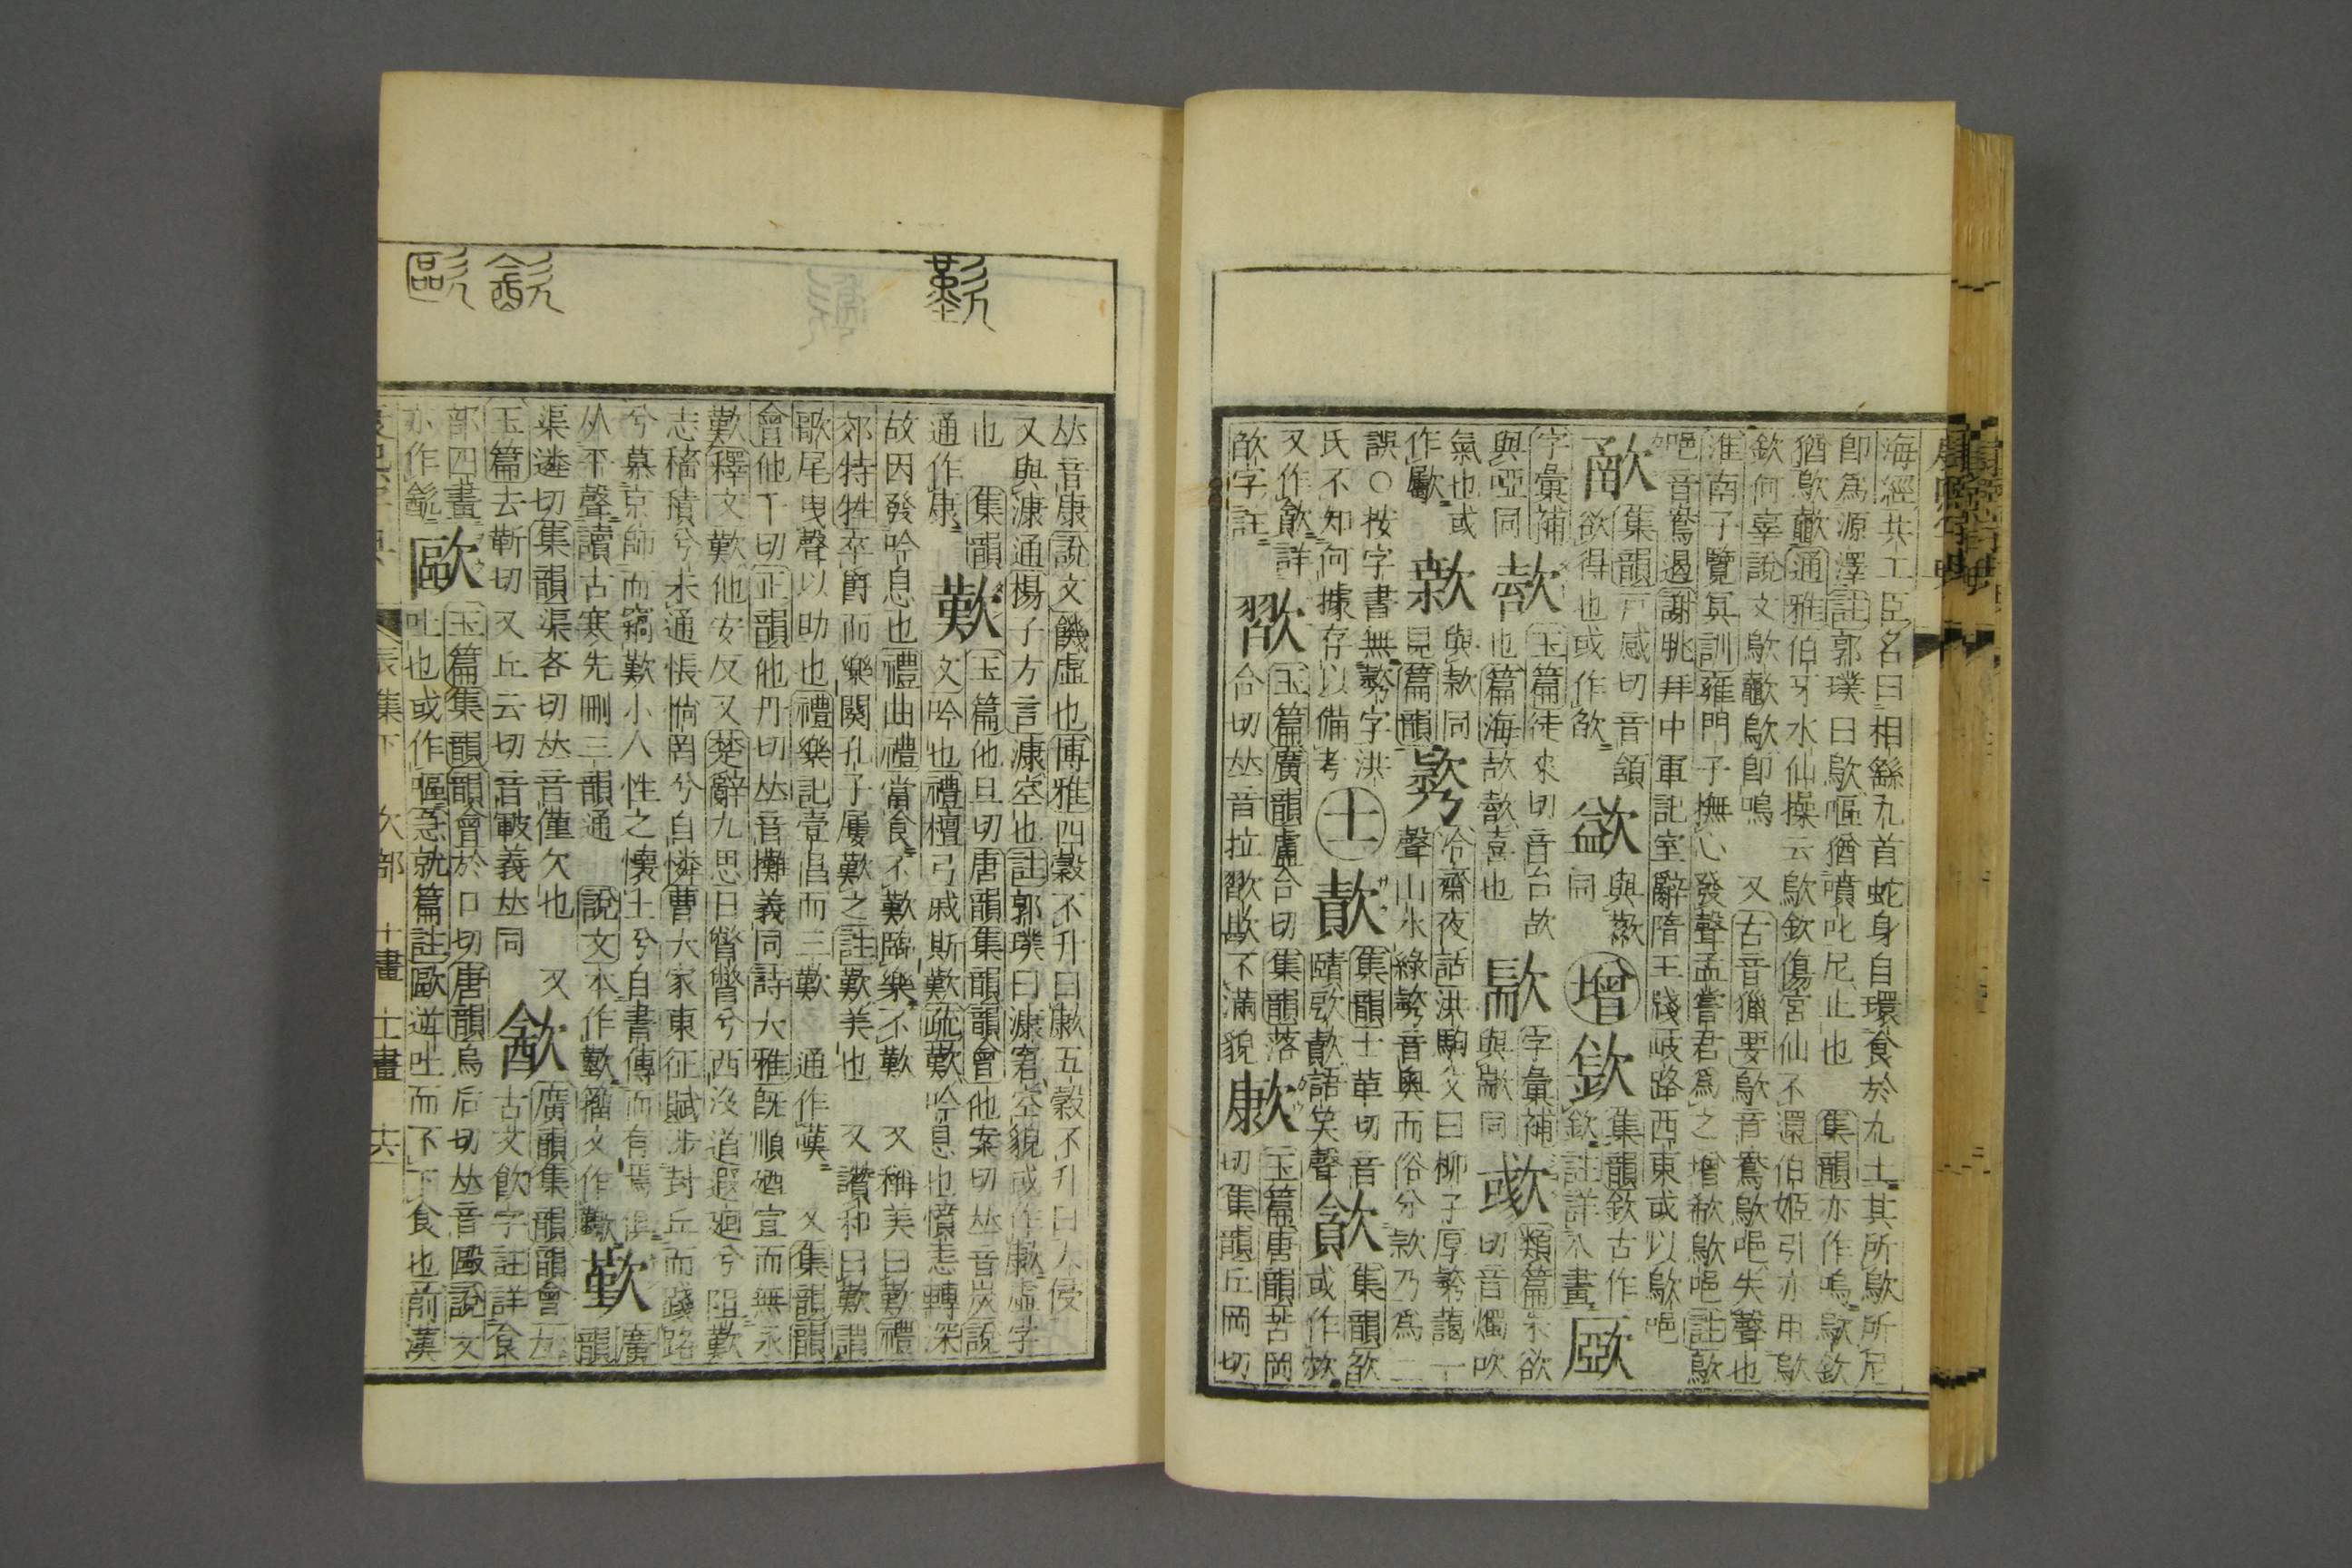 海經共工臣名曰相繇九首蛇身自環食於九土其所歍所尼
卽爲源澤註郭璞曰歍嘔猶噴吒尼止也 集韻亦作嗚歍欽
猶歍歔通雅伯牙水仙操云歍欽傷宮仙不還伯姬引亦用歍
欽何辜說文歍歔歍卽嗚 又古音獵要歍音鴦歍唈失聲也
淮南子覽冥訓雍門子撫心發聲孟嘗君爲之增欷歍唈註歍
唈音鴦遏謝朓拜中軍記室辭隋王牋岐路西東或以歍唈
集韻戸感切音頷
欲得也或作欿
與歉同
增
集韻欽古作
欽註詳八畫
字彙補
與啞同
玉篇徒來切音台故
也篇海故喜也
字彙補
與歇同
類篇朱欲
切音燭吹
氣也或
作歜
與款同
見篇韻
冷齋夜話洪駒父曰柳子厚藹一
聲山水綠音奥而俗分款乃爲二
誤○按字書無字洪
氏不知何據存以備考
十一
集韻士革切音
賾歎語笑聲
集韻欲
或作
又作歛詳
欿字註
歙
玉篇廣韻盧合切 集韻落
合切𠀤音拉歙不滿貌
歁
玉篇唐韻苦岡
切集韻丘岡切
𠀤音康說文饑虛也博雅四穀不升曰歉五穀不升曰大侵
又與漮通楊子方言漮空也註郭璞曰漮㝩空貌或作歉虛字
也 集韻
通作康
歎
玉篇他旦切唐韻集韻韻會他案切𠀤音炭說
文吟也禮檀弓戚斯歎疏歎吟息也憤恚轉深
故因發吟息也禮曲禮當食不歎臨樂不歎 又稱美曰歎禮
郊特牲卒爵而樂闋孔子屢歎之註歎美也 又讚和曰歎謂
歌尾曳聲以助也禮樂記壹倡而三歎 通作嘆 又集韻韻
會他干切正韻他丹切𠀤音攤義同詩大雅旣順廼宣而無永
歎釋文歎他安反又楚辭九思日瞥瞥兮西沒道遐廻兮阻歎
志稸積兮未通悵惝罔兮自憐曹大家東征賦涉封丘而踐路
兮慕京師而竊歎小人性之懷土兮自書傳而有焉俱
从平聲讀古寒先刪三韻通 說文本作歎籀文作
廣韻
渠遴切集韻渠吝切𠀤音僅欠也 又
玉篇去靳切又丘云切音㪊義𠀤同
廣韻集韻韻會𠀤
古文飮字註詳食
部四畫
亦作
歐
玉篇集韻韻會於口切唐韻烏后切𠀤音毆說文
吐也或作嘔急就篇註歐逆吐而不下食也前漢
辰集下 欠部 十畫 十一畫 共